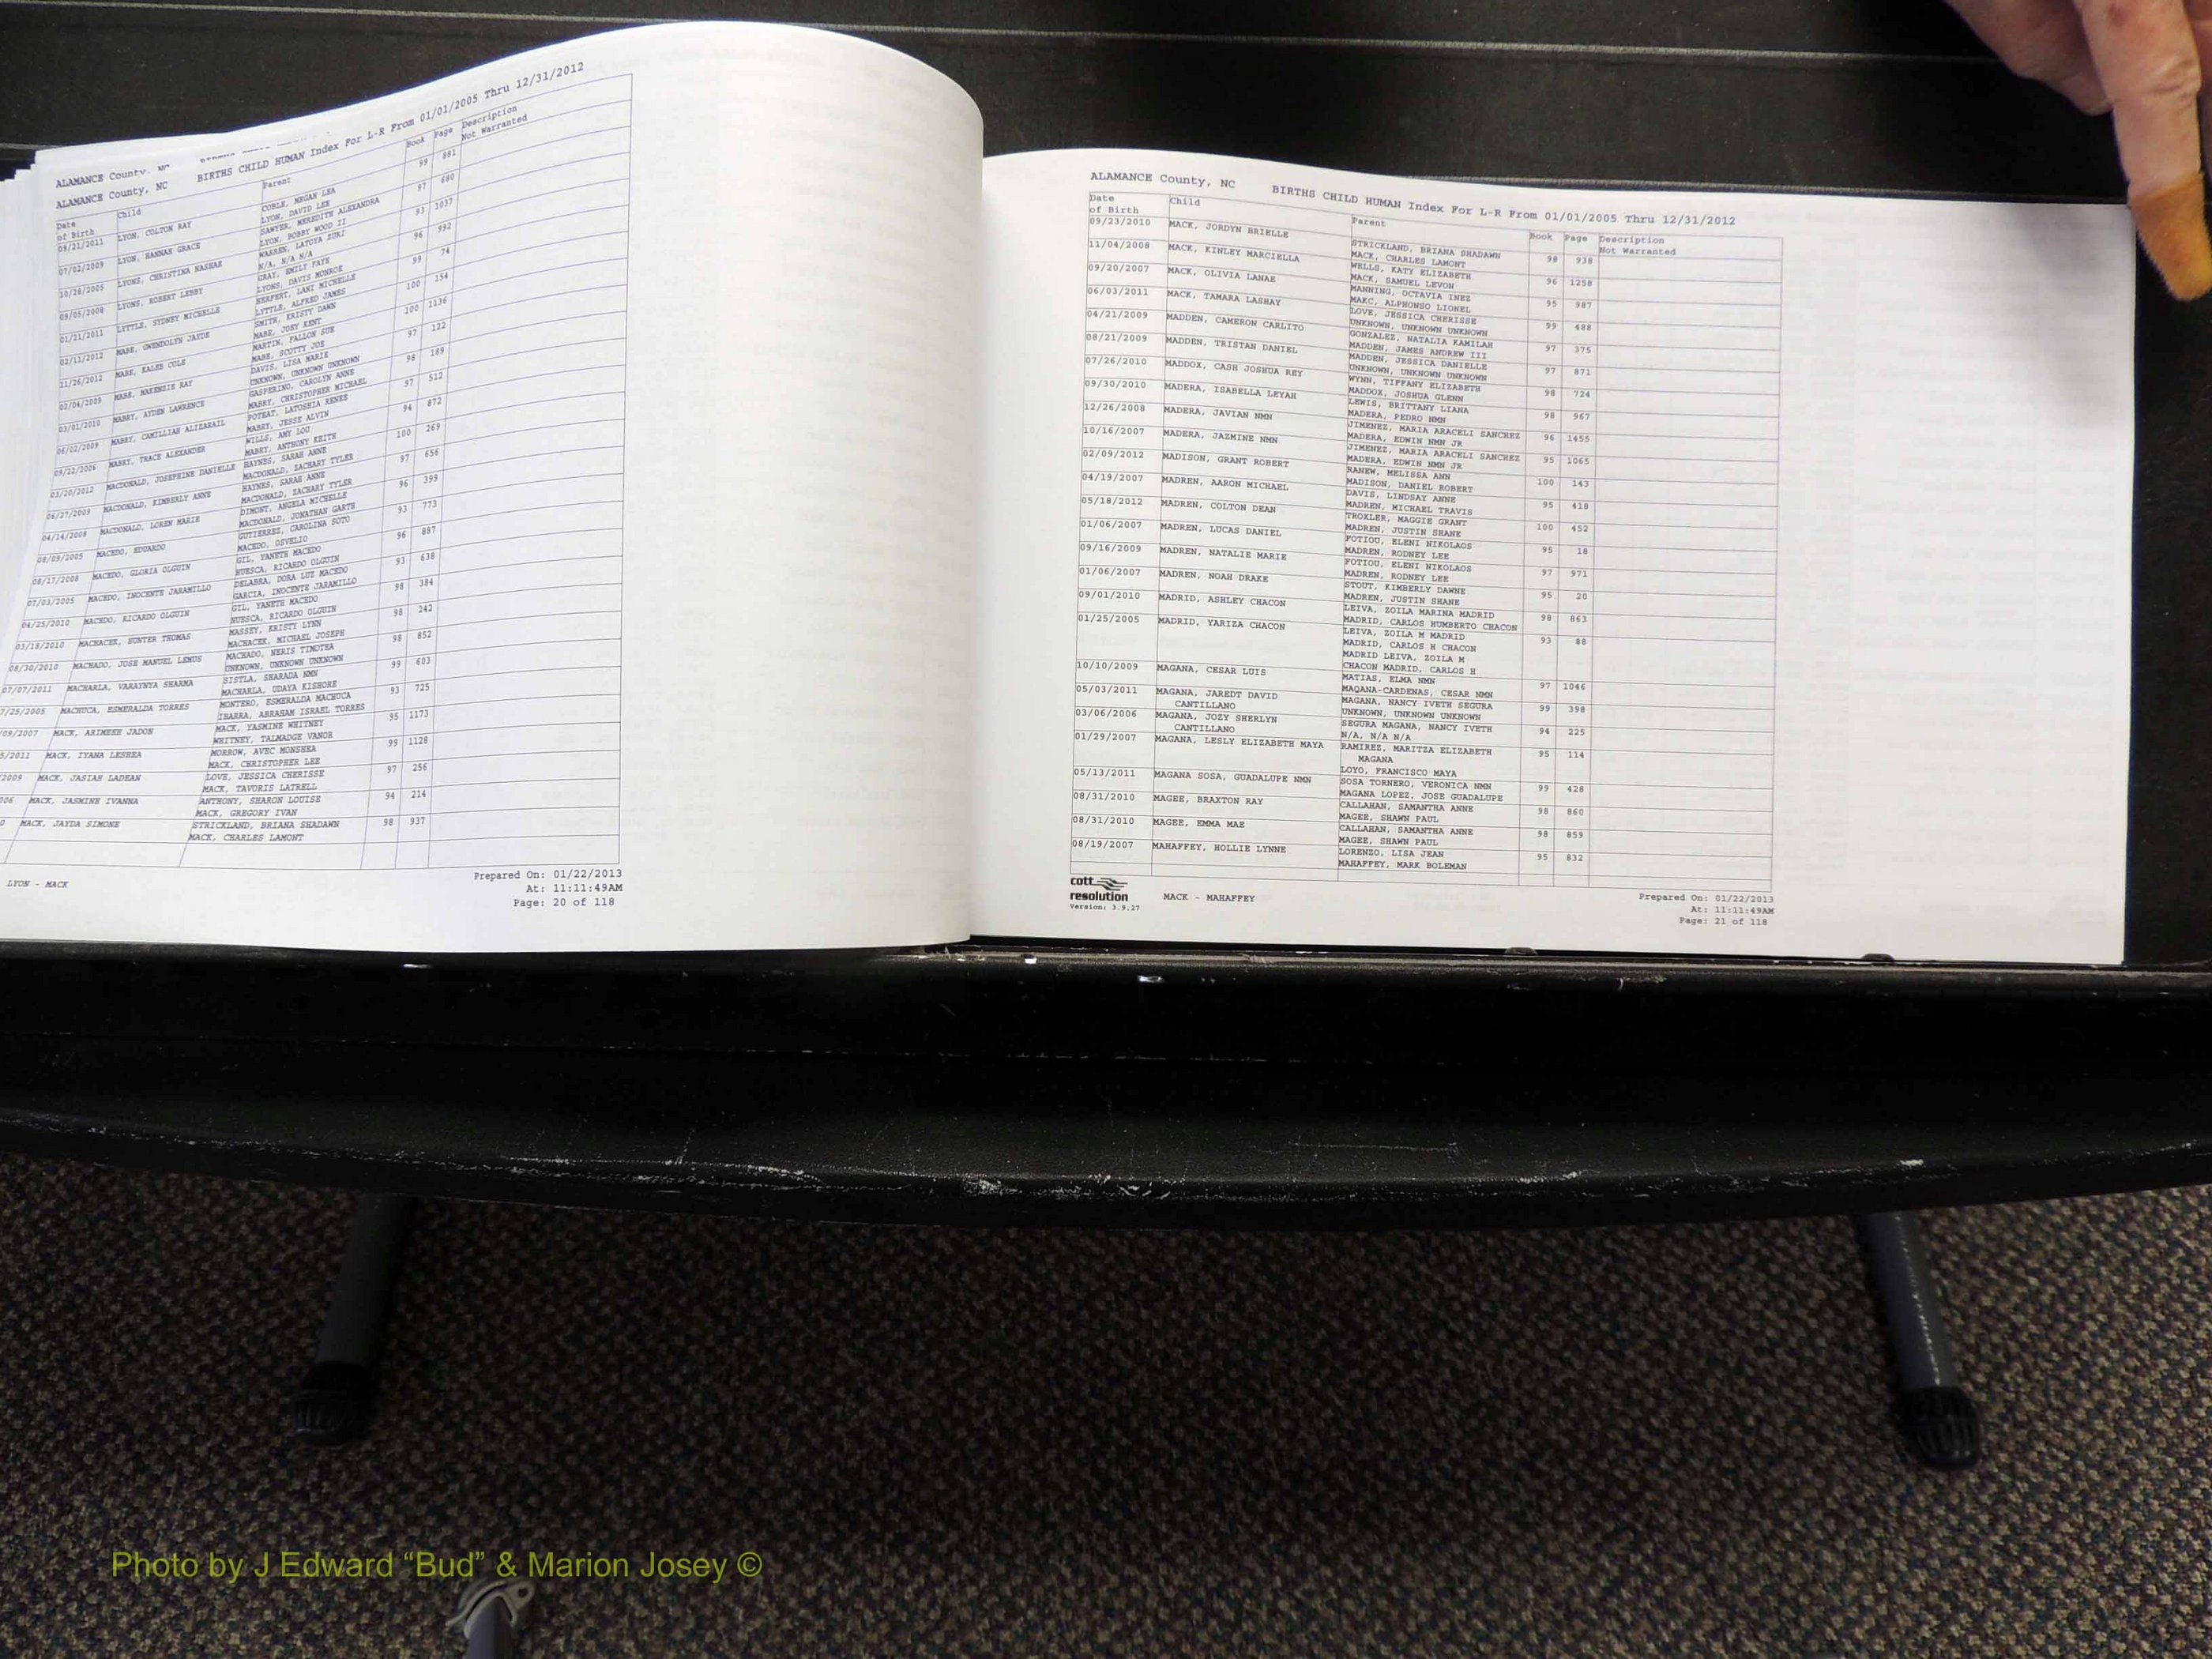 ALAMANCE County, NC
ALAMANCE County, NC BIRTHS CHILD HUMAN Index For L-R From 01/01/2005 Thru 12/31/2012
Date of Birth Child Parent Book Page Description Not Warranted
09/21/2011 LYON, COLTON RAY COBLE, MEGAN LEA 99 881
LYON, DAVID LEE
07/02/2009 LYON, HANNAH GRACE SAWYER, MEREDITH ALEXANDRA 97 680
LYON, BOBBY WOOD II
10/28/2005 LYONS, CHRISTINA NASHAE WARREN, LATOYA ZURI 93 1037
N/A, N/A N/A
09/05/2008 LYONS, ROBERT LEBBY GRAY, EMILY FAYE 96 992
LYONS, DAVIS MONROE
01/21/2011 LYTTLE, SYDNEY MICHELLE HERPERT, LANI MICHELLE 99 74
LYTTLE, ALFRED JAMES
02/11/2012 MABE, GWENDOLYN JAYDE SMITH, KRISTY DAWN 100 154
MABE, JOEY KENT
11/26/2012 MABE, KALEB COLE MARTIN, FALLON SUE 100 1136
MABE, SCOTTY JOE
02/04/2009 MABE, MAKENZIE RAY DAVIS, LISA MARIE 97 122
UNKNOWN, UNKNOWN UNKNOWN
03/01/2010 MABRY, AYDEN LAWRENCE GASPERINO, CAROLYN ANNE 98 189
MABRY, CHRISTOPHER MICHAEL
06/02/2009 MABRY, CAMILLIAH ALIZABAIL POTEAT, LATOSHIA RENEE 97 512
MABRY, JESSE ALVIN
09/22/2006 MABRY, TRACE ALEXANDER WILLS, AMY LOU 94 872
MABRY, ANTHONY KEITH
03/20/2012 MACDONALD, JOSEPHINE DANIELLE HAYNES, SARAH ANNE 100 269
MACDONALD, ZACHARY TYLER
06/27/2009 MACDONALD, KIMBERLY ANNE HAYNES, SARAH ANNE 97 656
MACDONALD, ZACHARY TYLER
04/14/2008 MACDONALD, LOREN MARIE DIMONT, ANGELA MICHELLE 96 399
MACDONALD, JONATHAN GARTH
08/09/2005 MACEDO, EDUARDO GUTIERREZ, CAROLINA SOTO 93 773
MACEDO, OSVELIO
08/17/2008 MACEDO, GLORIA OLGUIN GIL, YANETH MACEDO 96 897
HUESCA, RICARDO OLGUIN
07/03/2005 MACEDO, INOCENTE JARAMILLO DELABRA, DORA LUZ MACEDO 93 638
GARCIA, INOCENTE JARAMILLO
04/25/2010 MACEDO, RICARDO OLGUIN GIL, YANETH MACEDO 98 384
HUESCA, RICARDO OLGUIN
03/18/2010 MACHACEK, HUNTER THOMAS MASSEY, KRISTY LYNN 98 242
MACHACEK, MICHAEL JOSEPH
08/30/2010 MACHADO, JOSE MANUEL LEMUS MACHADO, NERIS TIMOTEA 98 852
UNKNOWN, UNKNOWN UNKNOWN
07/07/2011 MACHARLA, VARAYNYA SHARMA SISTLA, SHARADA NMN 99 603
MACHARLA, UDAYA KISHORE
7/25/2005 MACHUCA, ESMERALDA TORRES MONTERO, ESMERALDA MACHUCA 93 725
IBARRA, ABRAHAM ISRAEL TORRES
/09/2007 MACK, ARIMESH JADON MACK, YASMINE WHITNEY 95 1173
WHITNEY, TALMADGE VANOR
5/2011 MACK, IYANA LESHEA MORROW, AVEC MONSHEA 99 1128
MACK, CHRISTOPHER LEE
2009 MACK, JASIAH LADEAN LOVE, JESSICA CHERISSE 97 256
MACK, TAVORIS LATRELL
006 MACK, JASMINE IVANNA ANTHONY, SHARON LOUISE 94 214
MACK, GREGORY IVAN
0 MACK, JAYDA SIMONE STRICKLAND, BRIANA SHADAWN 98 937
MACK, CHARLES LAMONT
LYON - MACK
Prepared On: 01/22/2013
At: 11:11:49AM
Page: 20 of 118
ALAMANCE County, NC BIRTHS CHILD HUMAN Index For L-R From 01/01/2005 Thru 12/31/2012
Date of Birth Child Parent Book Page Description Not Warranted
09/23/2010 MACK, JORDYN BRIELLE STRICKLAND, BRIANA SHADAWN 98 938
MACK, CHARLES LAMONT
11/04/2008 MACK, KINLEY MARCIELLA WELLS, KATY ELIZABETH 96 1258
MACK, SAMUEL LEVON
09/20/2007 MACK, OLIVIA LANAE MANNING, OCTAVIA INEZ 95 987
MAKC, ALPHONSO LIONEL
06/03/2011 MACK, TAMARA LASHAY LOVE, JESSICA CHERISSE 99 488
UNKNOWN, UNKNOWN UNKNOWN
04/21/2009 MADDEN, CAMERON CARLITO GONZALEZ, NATALIA KAMILAH 97 375
MADDEN, JAMES ANDREW III
08/21/2009 MADDEN, TRISTAN DANIEL MADDEN, JESSICA DANIELLE 97 871
UNKNOWN, UNKNOWN UNKNOWN
07/26/2010 MADDOX, CASH JOSHUA REY WYNN, TIFFANY ELIZABETH 98 724
MADDOX, JOSHUA GLENN
09/30/2010 MADERA, ISABELLA LEYAH LEWIS, BRITTANY LIANA 98 967
MADERA, PEDRO NMN
12/26/2008 MADERA, JAVIAN NMN JIMENEZ, MARIA ARACELI SANCHEZ 96 1455
MADERA, EDWIN NMN JR
10/16/2007 MADERA, JAZMINE NMN JIMENEZ, MARIA ARACELI SANCHEZ 95 1065
MADERA, EDWIN NMN JR
02/09/2012 MADISON, GRANT ROBERT RANEW, MELISSA ANN 100 143
MADISON, DANIEL ROBERT
04/19/2007 MADREN, AARON MICHAEL DAVIS, LINDSAY ANNE 95 418
MADREN, MICHAEL TRAVIS
05/18/2012 MADREN, COLTON DEAN TROXLER, MAGGIE GRANT 100 452
MADREN, JUSTIN SHANE
01/06/2007 MADREN, LUCAS DANIEL FOTIOU, ELENI NIKOLAOS 95 18
MADREN, RODNEY LEE
09/16/2009 MADREN, NATALIE MARIE FOTIOU, ELENI NIKOLAOS 97 971
MADREN, RODNEY LEE
01/06/2007 MADREN, NOAH DRAKE STOUT, KIMBERLY DAWNE 95 20
MADREN, JUSTIN SHANE
09/01/2010 MADRID, ASHLEY CHACON LEIVA, ZOILA MARINA MADRID 98 863
MADRID, CARLOS HUMBERTO CHACON
01/25/2005 MADRID, YARIZA CHACON LEIVA, ZOILA M MADRID 93 88
MADRID, CARLOS H CHACON
MADRID LEIVA, ZOILA M
CHACON MADRID, CARLOS H
10/10/2009 MAGANA, CESAR LUIS MATIAS, ELMA NMN 97 1046
MAQANA-CARDENAS, CESAR NMN
05/03/2011 MAGANA, JAREDT DAVID MAGANA, NANCY IVETH SEGURA 99 398
CANTILLANO UNKNOWN, UNKNOWN UNKNOWN
03/06/2006 MAGANA, JOZY SHERLYN SEGURA MAGANA, NANCY IVETH 94 225
CANTILLANO N/A, N/A N/A
01/29/2007 MAGANA, LESLY ELIZABETH MAYA RAMIREZ, MARITZA ELIZABETH 95 114
MAGANA
LOYO, FRANCISCO MAYA
05/13/2011 MAGANA SOSA, GUADALUPE NMN SOSA TORNERO, VERONICA NMN 99 428
MAGANA LOPEZ, JOSE GUADALUPE
08/31/2010 MAGEE, BRAXTON RAY CALLAHAN, SAMANTHA ANNE 98 860
MAGEE, SHAWN PAUL
08/31/2010 MAGEE, EMMA MAE CALLAHAN, SAMANTHA ANNE 98 859
MAGEE, SHAWN PAUL
08/19/2007 MAHAFFEY, HOLLIE LYNNE LORENZO, LISA JEAN 95 832
MAHAFFEY, MARK BOLEMAN
cott
resolution
Version: 3.9.27
MACK - MAHAFFEY
Prepared On: 01/22/2013
At: 11:11:49AM
Page: 21 of 118
Photo by J Edward “Bud” & Marion Josey ©